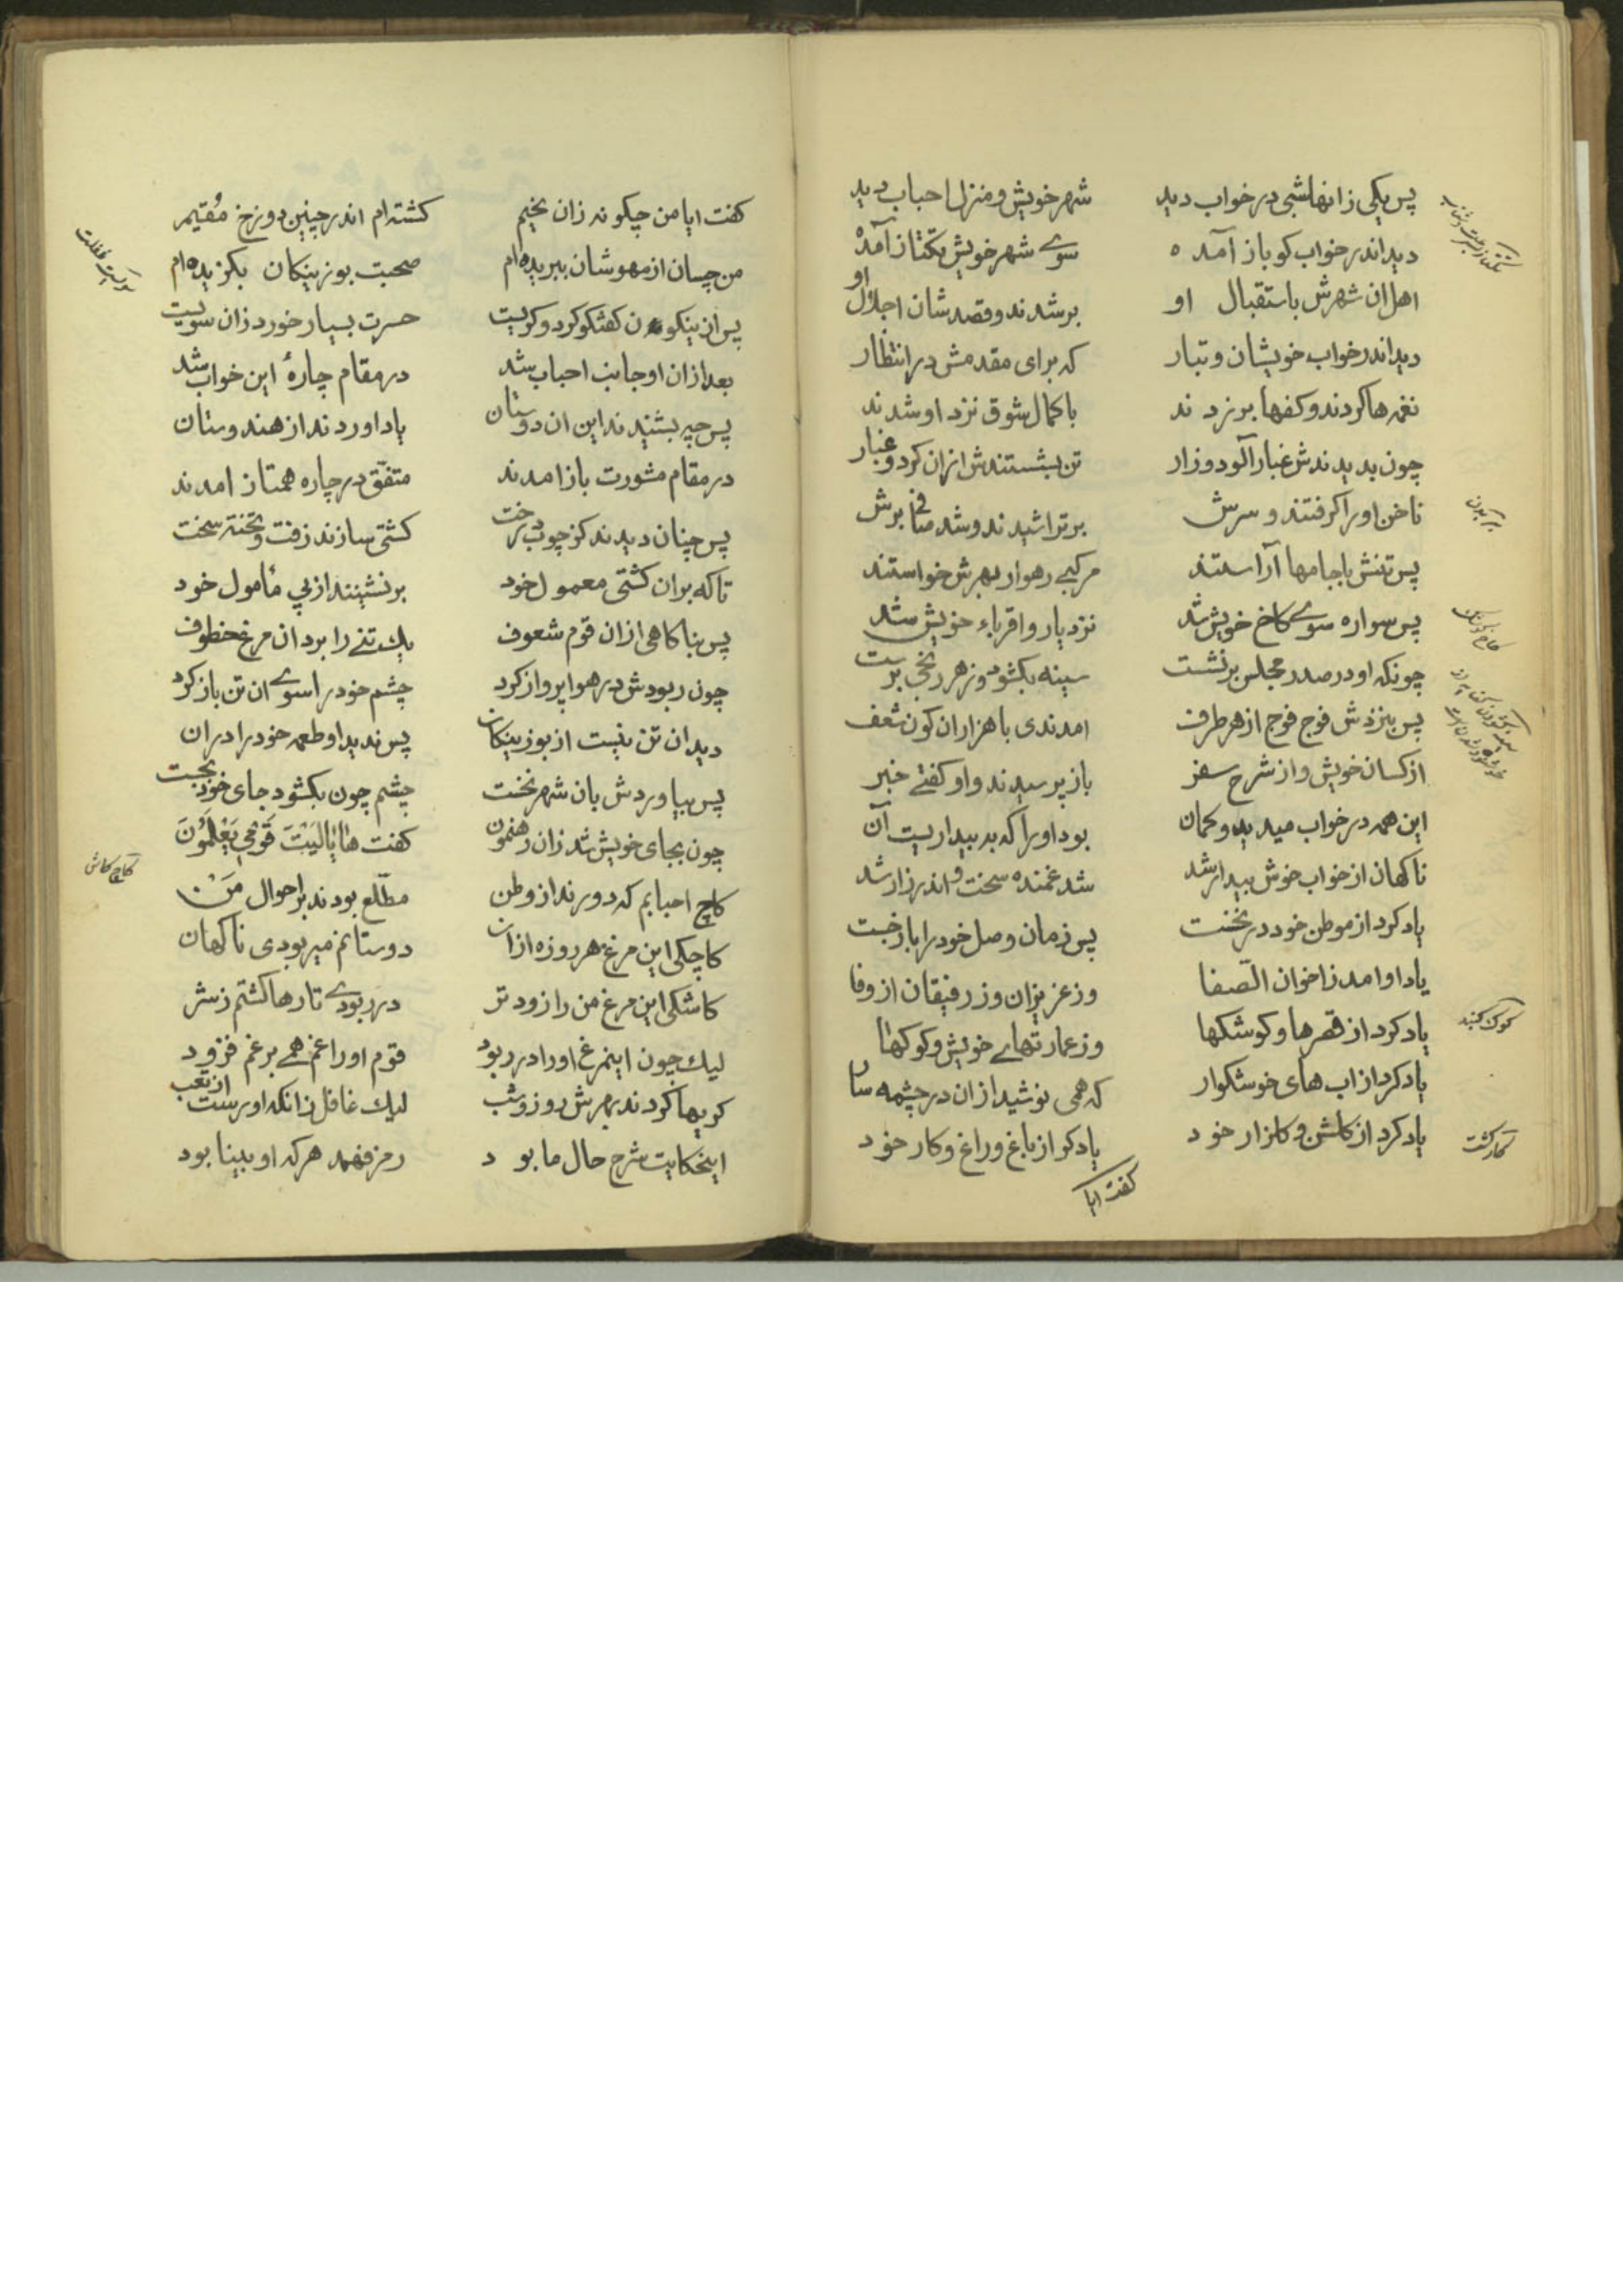 پس یکی زانها شبی در خواب دید شهر خویش و منزل احباب دید
دید اندر خواب کو باز آمده سوے شهر خویش یکتاز آمده
اهل ان شهرش باستقبال او برشدند و قصدشان اجلال او
دید اندر خواب خویشان و تبار که برای مقدمش در انتظار
نغمه ها کردند و کفها برزدند با کمال شوق نزد او شدند
چون بدیدندش غبار آلود و زار تن بشستندش ازان کرد و غبار
ناخن او را کرفتند و سرش برتراشیدند و شد صافی برش
پس تنش با جامها آراستند مرکبے رهوار بهرش خواستند
پس سواره سوے کاخ خویش شد نزد یار و اقرباء خویش شد
چونکه او در صدر مجلس برنشست سینه بکشود و ز هر رنجی برست
پس بنزدش فوج فوج از هر طرف امدندی با هزاران کون شعف
از کسان خویش و از شرح سفر باز پرسیدند و او کفتے خبر
این همه در خواب میدید و کمان بود او را که به بیداریست آن
ناکهان از خواب خوش بیدار شد شد غمنده سخت و اندر زار شد
یاد کرد از موطن خود در نخست پس زمان وصل خود را باز جست
یاد او امد ز اخوان الصّفا وز عزیزان وز رفیقان از وفا
یاد کرد از قصرها و کوشکها وز عمارتهاے خویش و کوکها
یاد کرد از اب های خوشکوار که همی نوشید ازان در چشمه سار
یاد کرد از کلشن و کلزار خود یاد کر از باغ و راغ و کار خود
کفت ایا
کوک کنبد
کار کشت
کفت ایا من چکونه زان نخیم کشته ام اندر چنین دوزخ مُقیم
من چسان از مهوشان ببریده ام صحبت بوزینکان بکزیده ام
پس ازینکون کفتکو کرد و کریست حسرت بسیار خورد زان سو بیت
بعد ازان او جانب احباب شد در مقام چارهٔ این خواب شد
پس چه بشنیدند این ان دوستان یاد اوردند از هندوستان
در مقام مشورت باز امدند متفّق در چاره همتاز امدند
پس چنان دیدند کز چوب درخت کشتی سازند زفت و پخته سخت
تا که بر ان کشتی معمول خود برنشینند از پی مأمول خود
پس بناکاهی ازان قوم شعوف یک تنے را برد ان مرغ خطوف
چون ربودش در هوا پرواز کرد چشم خود را سوے ان تن باز کرد
دید ان تن نیست از بوزینکان پس ندید او طعمه خود را دران
پس بیاوردش بان شهر نخست چشم چون بکشود جای خود بجست
چون بجای خویش شد زان رهنمون کفت ها یٰالَیْتَ قَوْمی یَعْلَمُونَ
کاچ احبابم که دورند از وطن مطّلع بودند بر احوال مَنْ
کاچکی این مرغ هر روزه ازان دوستانم میربودی ناکهان
کاشکی این مرغ من را زودتر در ربودے تا رها کشتم ز شر
لیک چون اینمرغ او را در ربود قوم او را غم همے بر غم فزود
کریها کردند بهرش روز و شب لیک غافل زانکه او رست از تعب
اینحکایت شرح حال ما بود رمز فهمد هر که او بینا بود
کاچ کاش